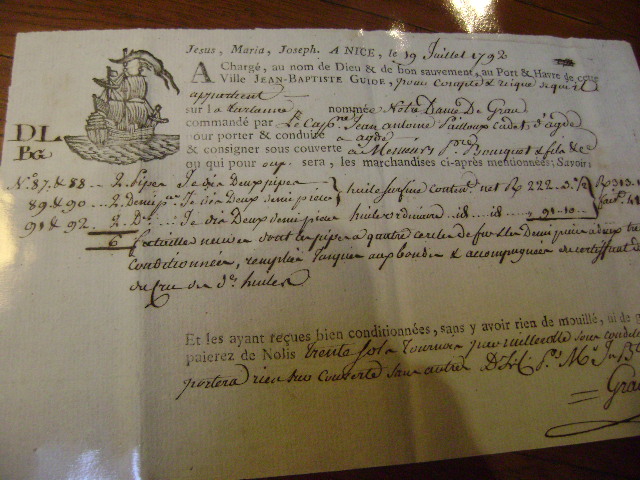 Jesus, Maria, Joseph. A NICE, le 19 Juillet 1792
A Chargé, au nom de Dieu & de bon sauvement, au Port & Havre de cette
Ville JEAN-BAPTISTE GUIDE, pour Compte & risque de qui il
appartient
sur la Tartanne nommée Notre Dame De Grau
commandé par Le Cap.ne Jean antoine Cadet d'agde
pour porter & conduire à agde
& consigner sous couverte à Messieurs Bousquet & fils &c
ou qui pour eux sera, les marchandises ci-après mentionnées; Savoir;
DL
BG
N.os 87 & 88 -- 2. Pipes Je dis Deux pipes huile surfine net 222
89 & 90 -- 2. Demi Je dis Deux demi pieces
91 & 92 -- 2. D.o Je dis Deux demi pieces huile ordinaire id id 91-10
6 futailles neuves dont les pipes a quatre cercles de fer & les Demi
Conditionnées, remplies jusques aux bondes & accompagnées de certificat
du cru des d.es huiles
Et les ayant reçues bien conditionnées, sans y avoir rien de mouillé, ni de
paierez de Nolis trente sols Tournois par millerolle sous
portera rien sur couverte sans autre
Grau